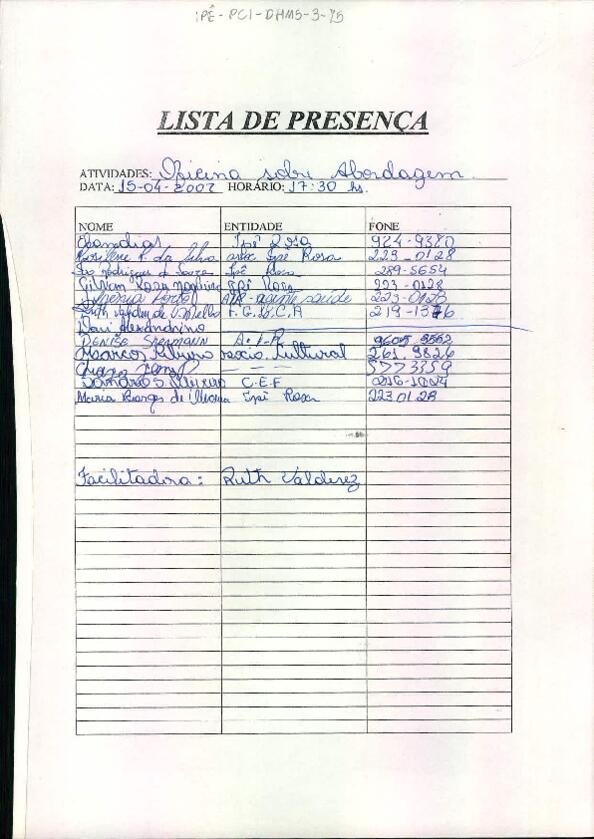 IPÊ-PCI-DHMS-3-75
LISTA DE PRESENÇA
ATIVIDADES: Oficina sobre Abordagem
DATA: 15-04-2002 HORÁRIO: 17:30 hs.
NOME ENTIDADE FONE
Ipê Rosa 924-9380
Rosilene R. da Silva assoc Ipê Rosa 223-0128
Rodrigues de Souza Ipê Rosa 289-5654
Gilvan Rosa Ipê Rosa 223-0128
AIR-agente saúde 223-0128
Ruth F.G.B.C.A 219-1376
Davi Alexandrino
DENISE A.I.R 9605
Marcos Ribeiro Cultural 261.9826
5773359
C.E.F
Maria Borges de Oliveira Ipê Rosa 2230128
Facilitadora: Ruth Valderez